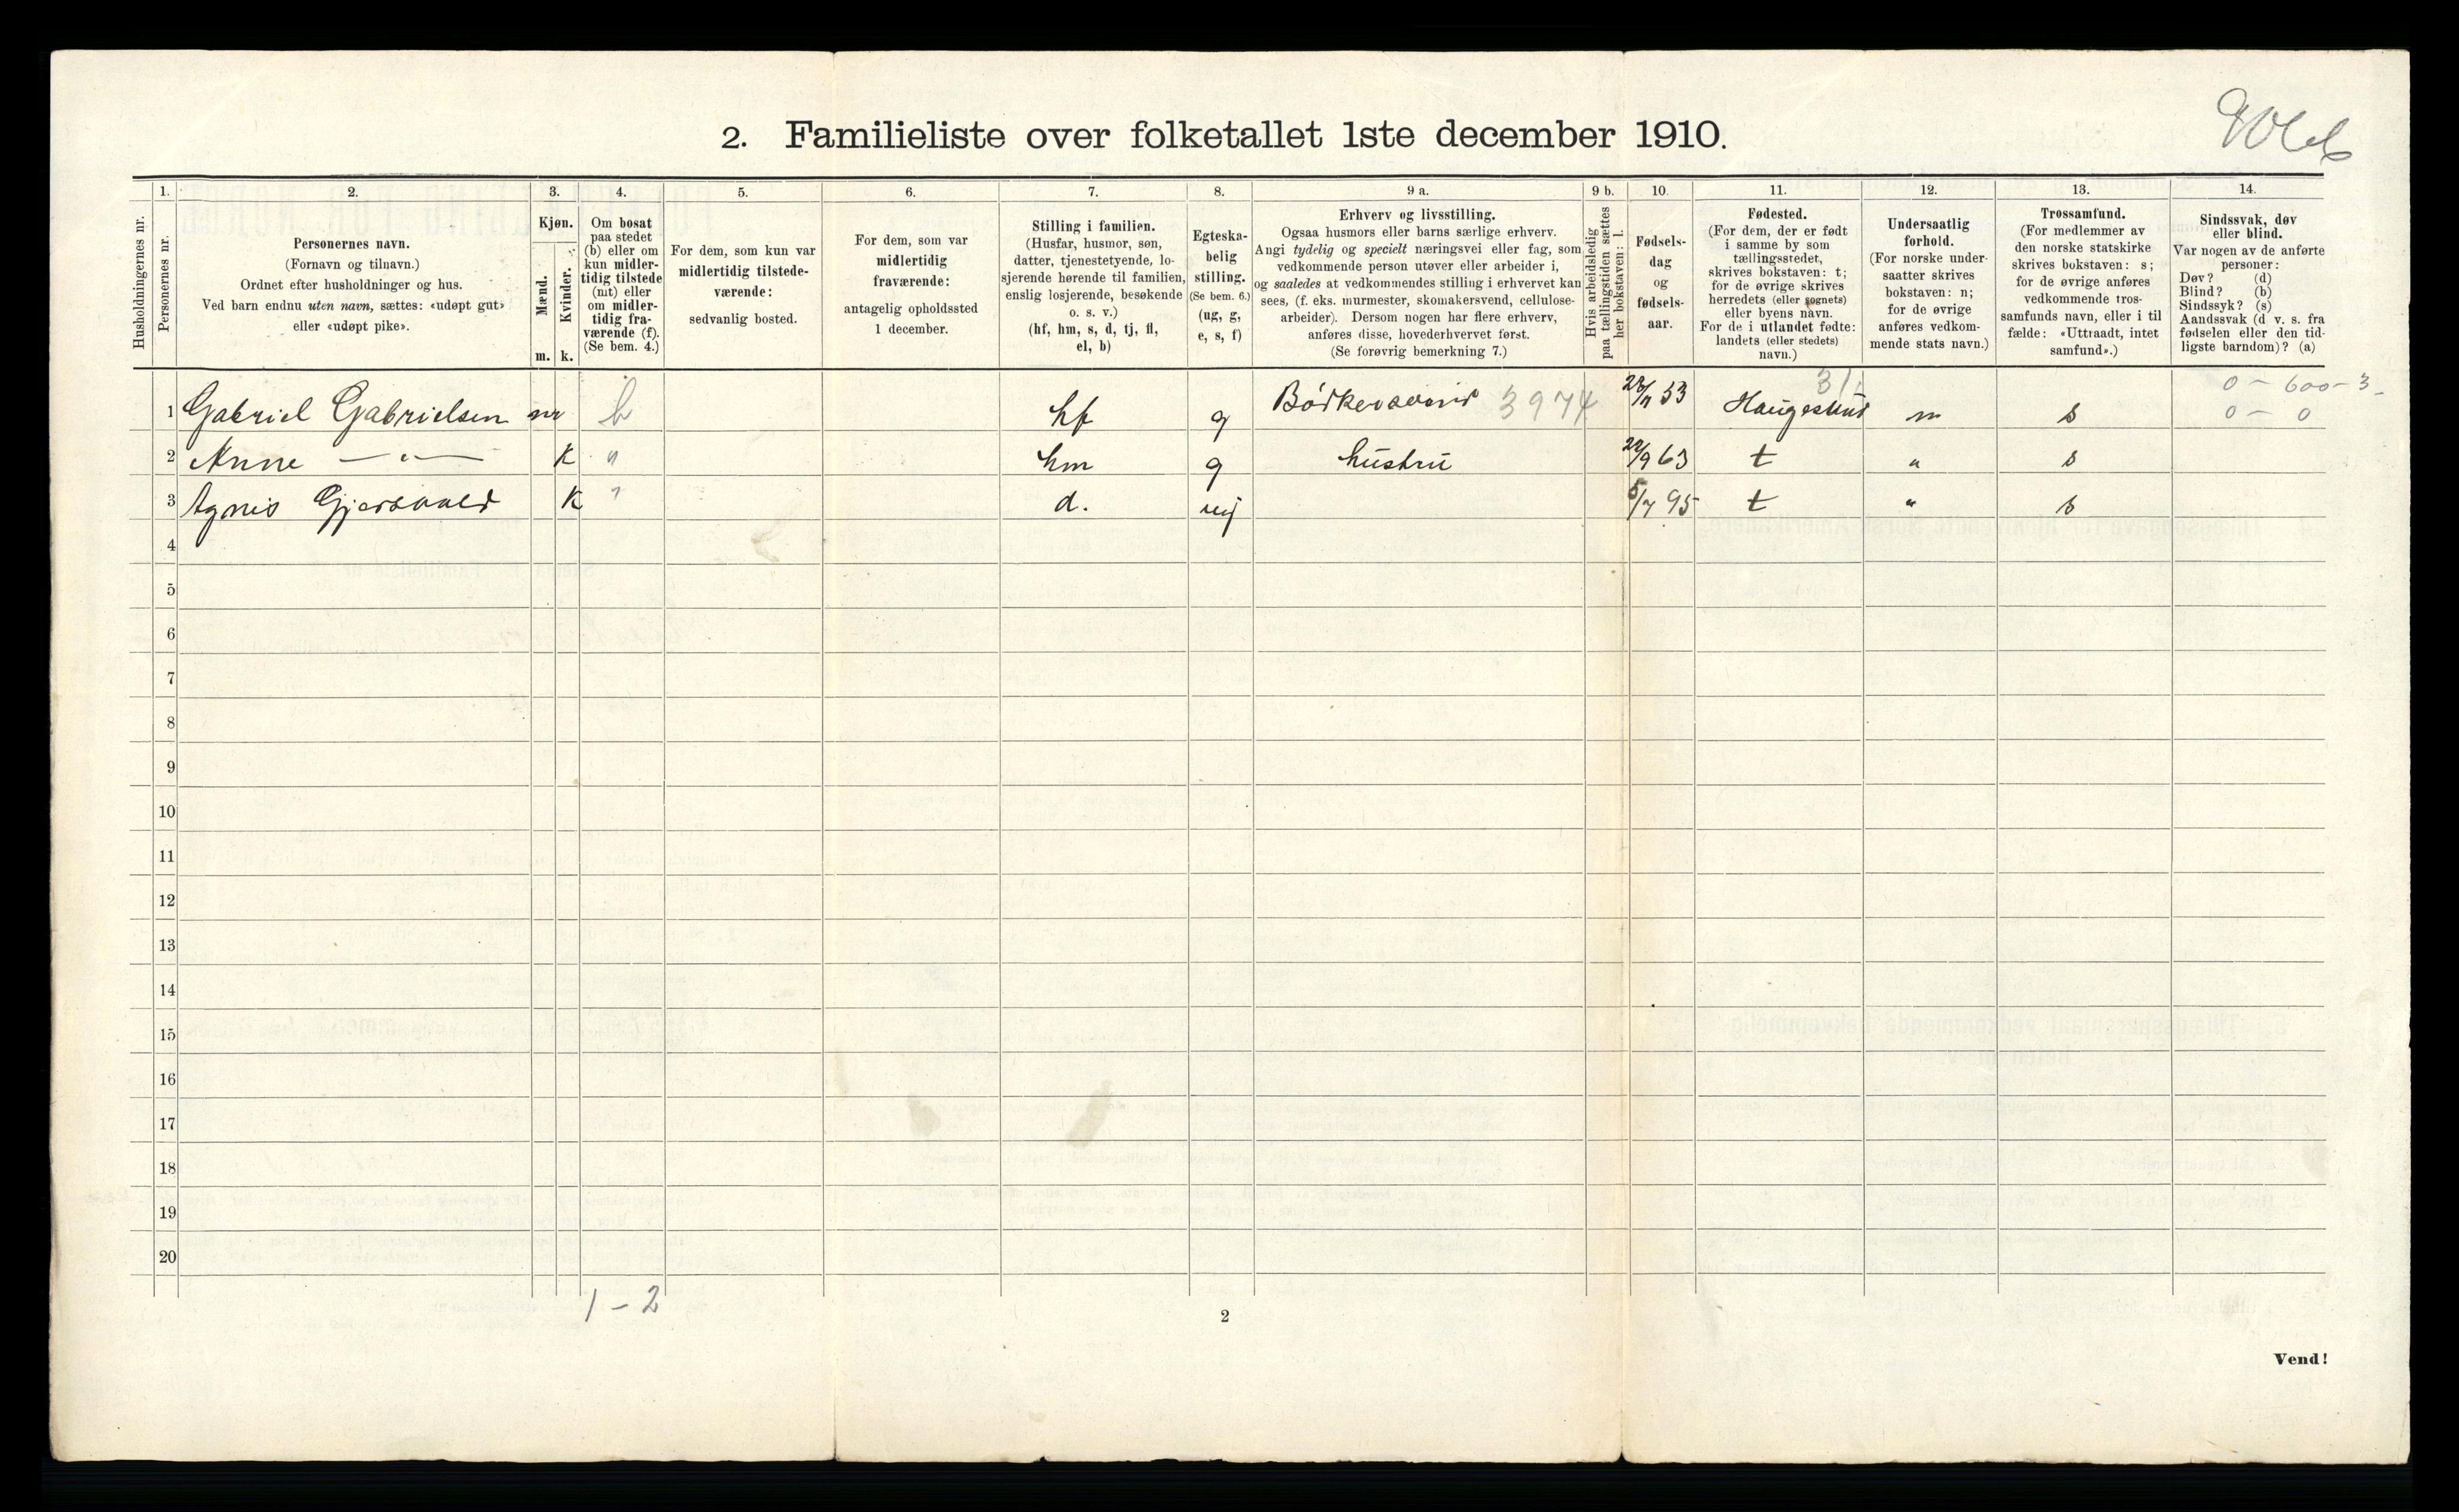 2. Familieliste over folketallet 1ste december 1910.
1. 2. 3. 4. 5. 6. 7. 8. 9 a. 9 b. 10. 11. 12. 13. 14.
Husholdningernes nr.
Personernes nr.
Personernes navn.
(Fornavn og tilnavn.)
Ordnet efter husholdninger og hus.
Ved barn endnu uten navn, sættes: «udøpt gut»
eller «udøpt pike».
Kjøn.
Mænd.
Kvinder.
m. k.
Om bosat
paa stedet
(b) eller om
kun midler-
tidig tilstede
(mt) eller
om midler-
tidig fra-
værende (f).
(Se bem. 4.)
For dem, som kun var
midlertidig tilstede-
værende:
sedvanlig bosted.
For dem, som var
midlertidig
fraværende:
antagelig opholdssted
1 december.
Stilling i familien.
(Husfar, husmor, søn,
datter, tjenestetyende, lo-
sjerende hørende til familien,
enslig losjerende, besøkende
o. s. v.)
(hf, hm, s, d, tj, fl,
el, b)
Egteska-
belig
stilling.
(Se bem. 6.)
(ug, g,
e, s, f)
Erhverv og livsstilling.
Ogsaa husmors eller barns særlige erhverv.
Angi tydelig og specielt næringsvei eller fag, som
vedkommende person utøver eller arbeider i,
og saaledes at vedkommendes stilling i erhvervet kan
sees, (f. eks. murmester, skomakersvend, cellulose-
arbeider). Dersom nogen har flere erhverv,
anføres disse, hovederhvervet først.
(Se forøvrig bemerkning 7.)
Hvis arbeidsledig
paa tællingstiden sættes
her bokstaven: l.
Fødsels-
dag
og
fødsels-
aar.
Fødested.
(For dem, der er født
i samme by som
tællingsstedet,
skrives bokstaven: t;
for de øvrige skrives
herredets (eller sognets)
eller byens navn.
For de i utlandet fødte:
landets (eller stedets)
navn.)
Undersaatlig
forhold.
(For norske under-
saatter skrives
bokstaven: n;
for de øvrige
anføres vedkom-
mende stats navn.)
Trossamfund.
(For medlemmer av
den norske statskirke
skrives bokstaven: s;
for de øvrige anføres
vedkommende tros-
samfunds navn, eller i til
fælde: «Uttraadt, intet
samfund».)
Sindssvak, døv
eller blind.
Var nogen av de anførte
personer:
Døv? (d)
Blind? (b)
Sindssyk? (s)
Aandssvak (d v. s. fra
fødselen eller den tid-
ligste barndom)? (a)
0 - 600 - 3
1 Gabriel Gabrielsen m b hf g Bødkersvend 3974 53 Haugesund n s 0 - 0
2 Anne — " — K " hm g hustru 22/9 63 t " s
3 Agnes K " d. ug 5/7 95 t " s
4
5
6
7
8
9
10
11
12
13
14
15
16
17
18
19
20
1 - 2
2
Vend!